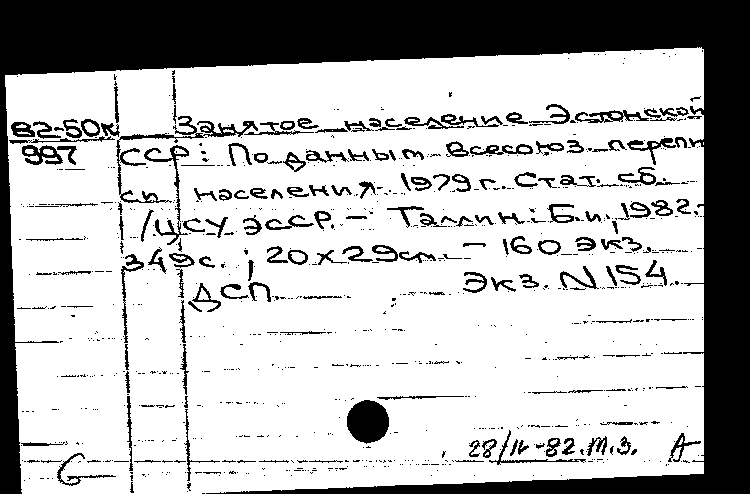 82-50к Занятое население Эстонской
997 ССР: По данным Всесоюз. перепи
си населения 1979 г. Стат. сб.
/ЦСУ ЭССР. – Таллин: Б.и., 1982.-
349с. ; 20 х 29см. – 160 экз.
ДСП. Экз. N 154.
28/IV-82.т.з. А